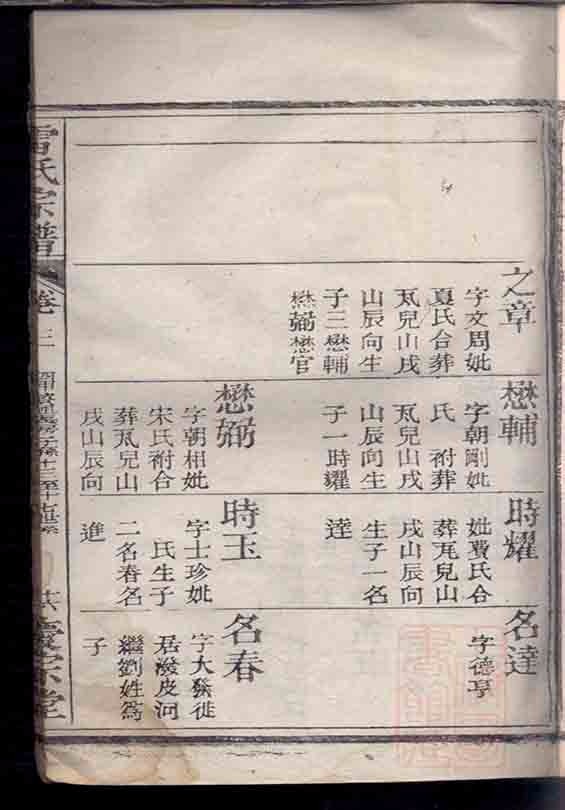 之章
字文周妣
夏氏合葬
瓦兒山戌
山辰向生
子三懋輔
懋弼懋官
懋輔
字朝剛妣
氏 祔葬
瓦兒山戌
山辰向生
子一時耀
懋弼
字朝相妣
宋氏祔合
葬瓦兒山
戌山辰向
時耀
妣黃氏合
葬瓦兒山
戌山辰向
生子一名
達
時玉
字士珍妣
氏生子
二名春名
進
名達
字德亨
名春
字大發徙
居潑皮河
繼劉姓爲
子
氏宗譜
卷三